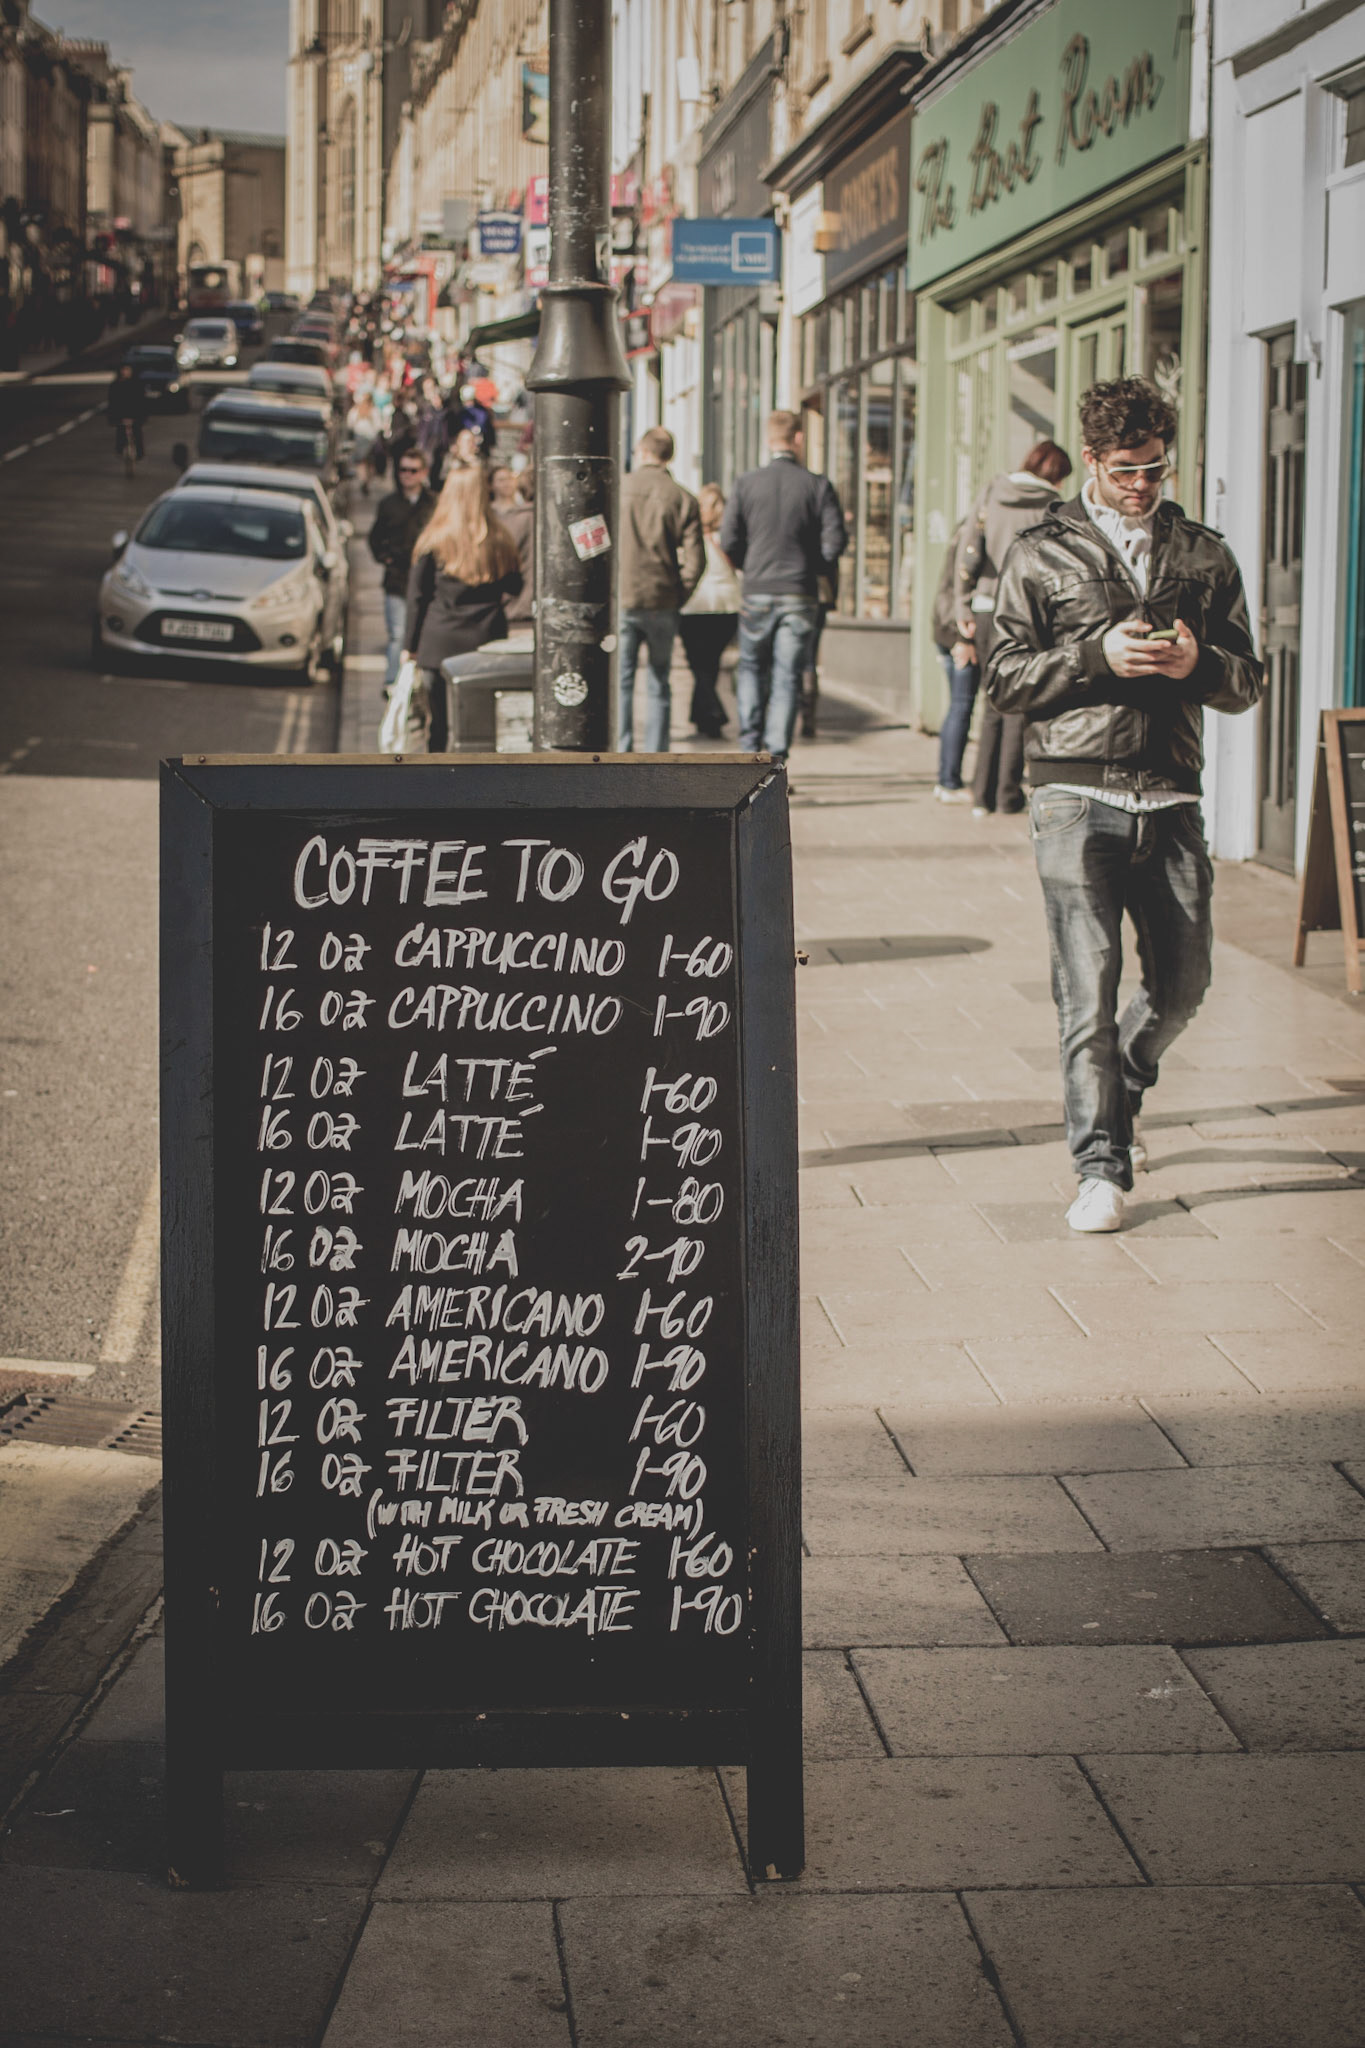 The Boot Room
COFFEE TO GO
12 OZ CAPPUCCINO 1-60
16 OZ CAPPUCCINO 1-90
12 OZ LATTÉ 1-60
16 OZ LATTÉ 1-90
12 OZ MOCHA 1-80
16 OZ MOCHA 2-10
12 OZ AMERICANO 1-60
16 OZ AMERICANO 1-90
12 OZ FILTER 1-60
16 OZ FILTER 1-90
(WITH MILK OR FRESH CREAM)
12 OZ HOT CHOCOLATE 1-60
16 OZ HOT CHOCOLATE 1-90